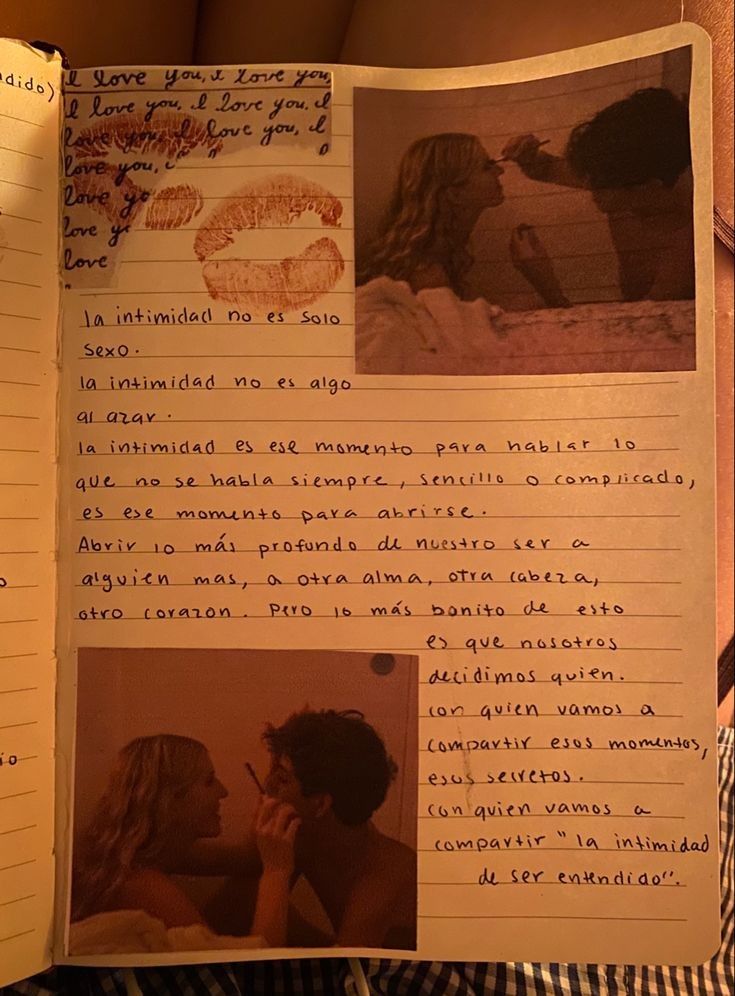 dido)
I love you, I love you,
I love you, I love you, I
love you, I love you, I
love you,
love yo
love y
love
la intimidad no es solo
sexo.
la intimidad no es algo
al azar.
la intimidad es ese momento para hablar lo
que no se habla siempre, sencillo o complicado,
es ese momento para abrirse.
Abrir lo más profundo de nuestro ser a
alguien mas, a otra alma, otra cabeza,
otro corazon. Pero lo más bonito de esto
es que nosotros
decidimos quien.
con quien vamos a
compartir esos momentos,
esos secretos.
con quien vamos a
compartir "la intimidad
de ser entendido".